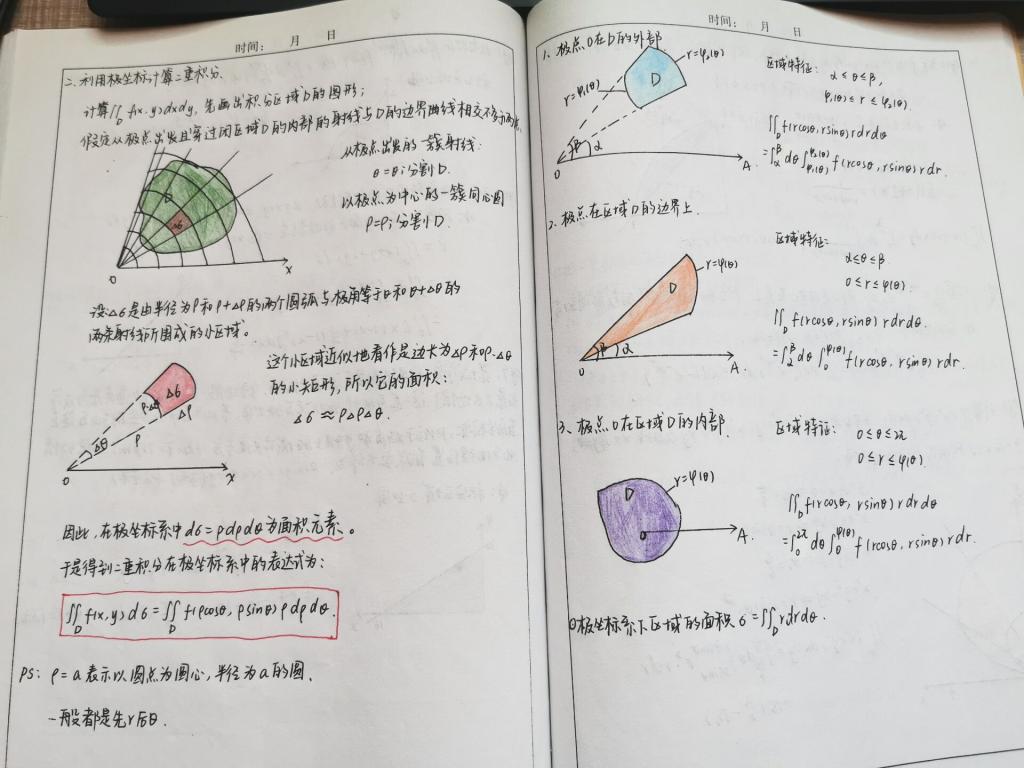 时间: 月 日
二、利用极坐标计算二重积分.
计算∬_D f(x,y)dxdy, 先画出积分区域D的图形;
假定从极点出发且穿过闭区域D的内部的射线与D的边界曲线相交不多于两点.
从极点出发的一簇射线:
θ=θi分割D.
以极点为中心的一簇同心圆
ρ=ρi分割D.
D
Δ6
0
x
设Δ6是由半径为ρ和ρ+Δρ的两个圆弧与极角等于θ和θ+Δθ的
两条射线所围成的小区域。
这个小区域近似地看作是边长为Δρ和ρ·Δθ
的小矩形,所以它的面积:
Δ6≈ρΔρΔθ.
Δ6
ρ·Δθ
Δρ
Δθ
ρ
0
x
因此,在极坐标系中d6=ρdρdθ为面积元素。
于是得到二重积分在极坐标系中的表达式为:
∬_D f(x,y)d6=∬_D f(ρcosθ, ρsinθ)ρdρdθ.
PS: ρ=a表示以圆点为圆心,半径为a的圆.
一般都是先r后θ.
时间: 月 日
1、极点0在D的外部
r=φ₂(θ)
D
r=φ₁(θ)
β
α
0
A.
区域特征: α≤θ≤β,
φ₁(θ)≤r≤φ₂(θ).
∬_D f(rcosθ,rsinθ)rdrdθ
=∫_α^β dθ∫_φ₁(θ)^φ₂(θ) f(rcosθ,rsinθ)rdr.
2、极点在区域D的边界上.
r=φ(θ)
D
β
α
0
A.
区域特征:
α≤θ≤β
0≤r≤φ(θ)
∬_D f(rcosθ,rsinθ)rdrdθ.
=∫_α^β dθ∫_0^φ(θ) f(rcosθ,rsinθ)rdr.
3、极点0在区域D的内部.
r=φ(θ)
D
0
A.
区域特征: 0≤θ≤2π
0≤r≤φ(θ)
∬_D f(rcosθ, rsinθ)rdrdθ
=∫_0^2π dθ∫_0^φ(θ) f(rcosθ,rsinθ)rdr.
极坐标系下区域的面积6=∬_D rdrdθ.